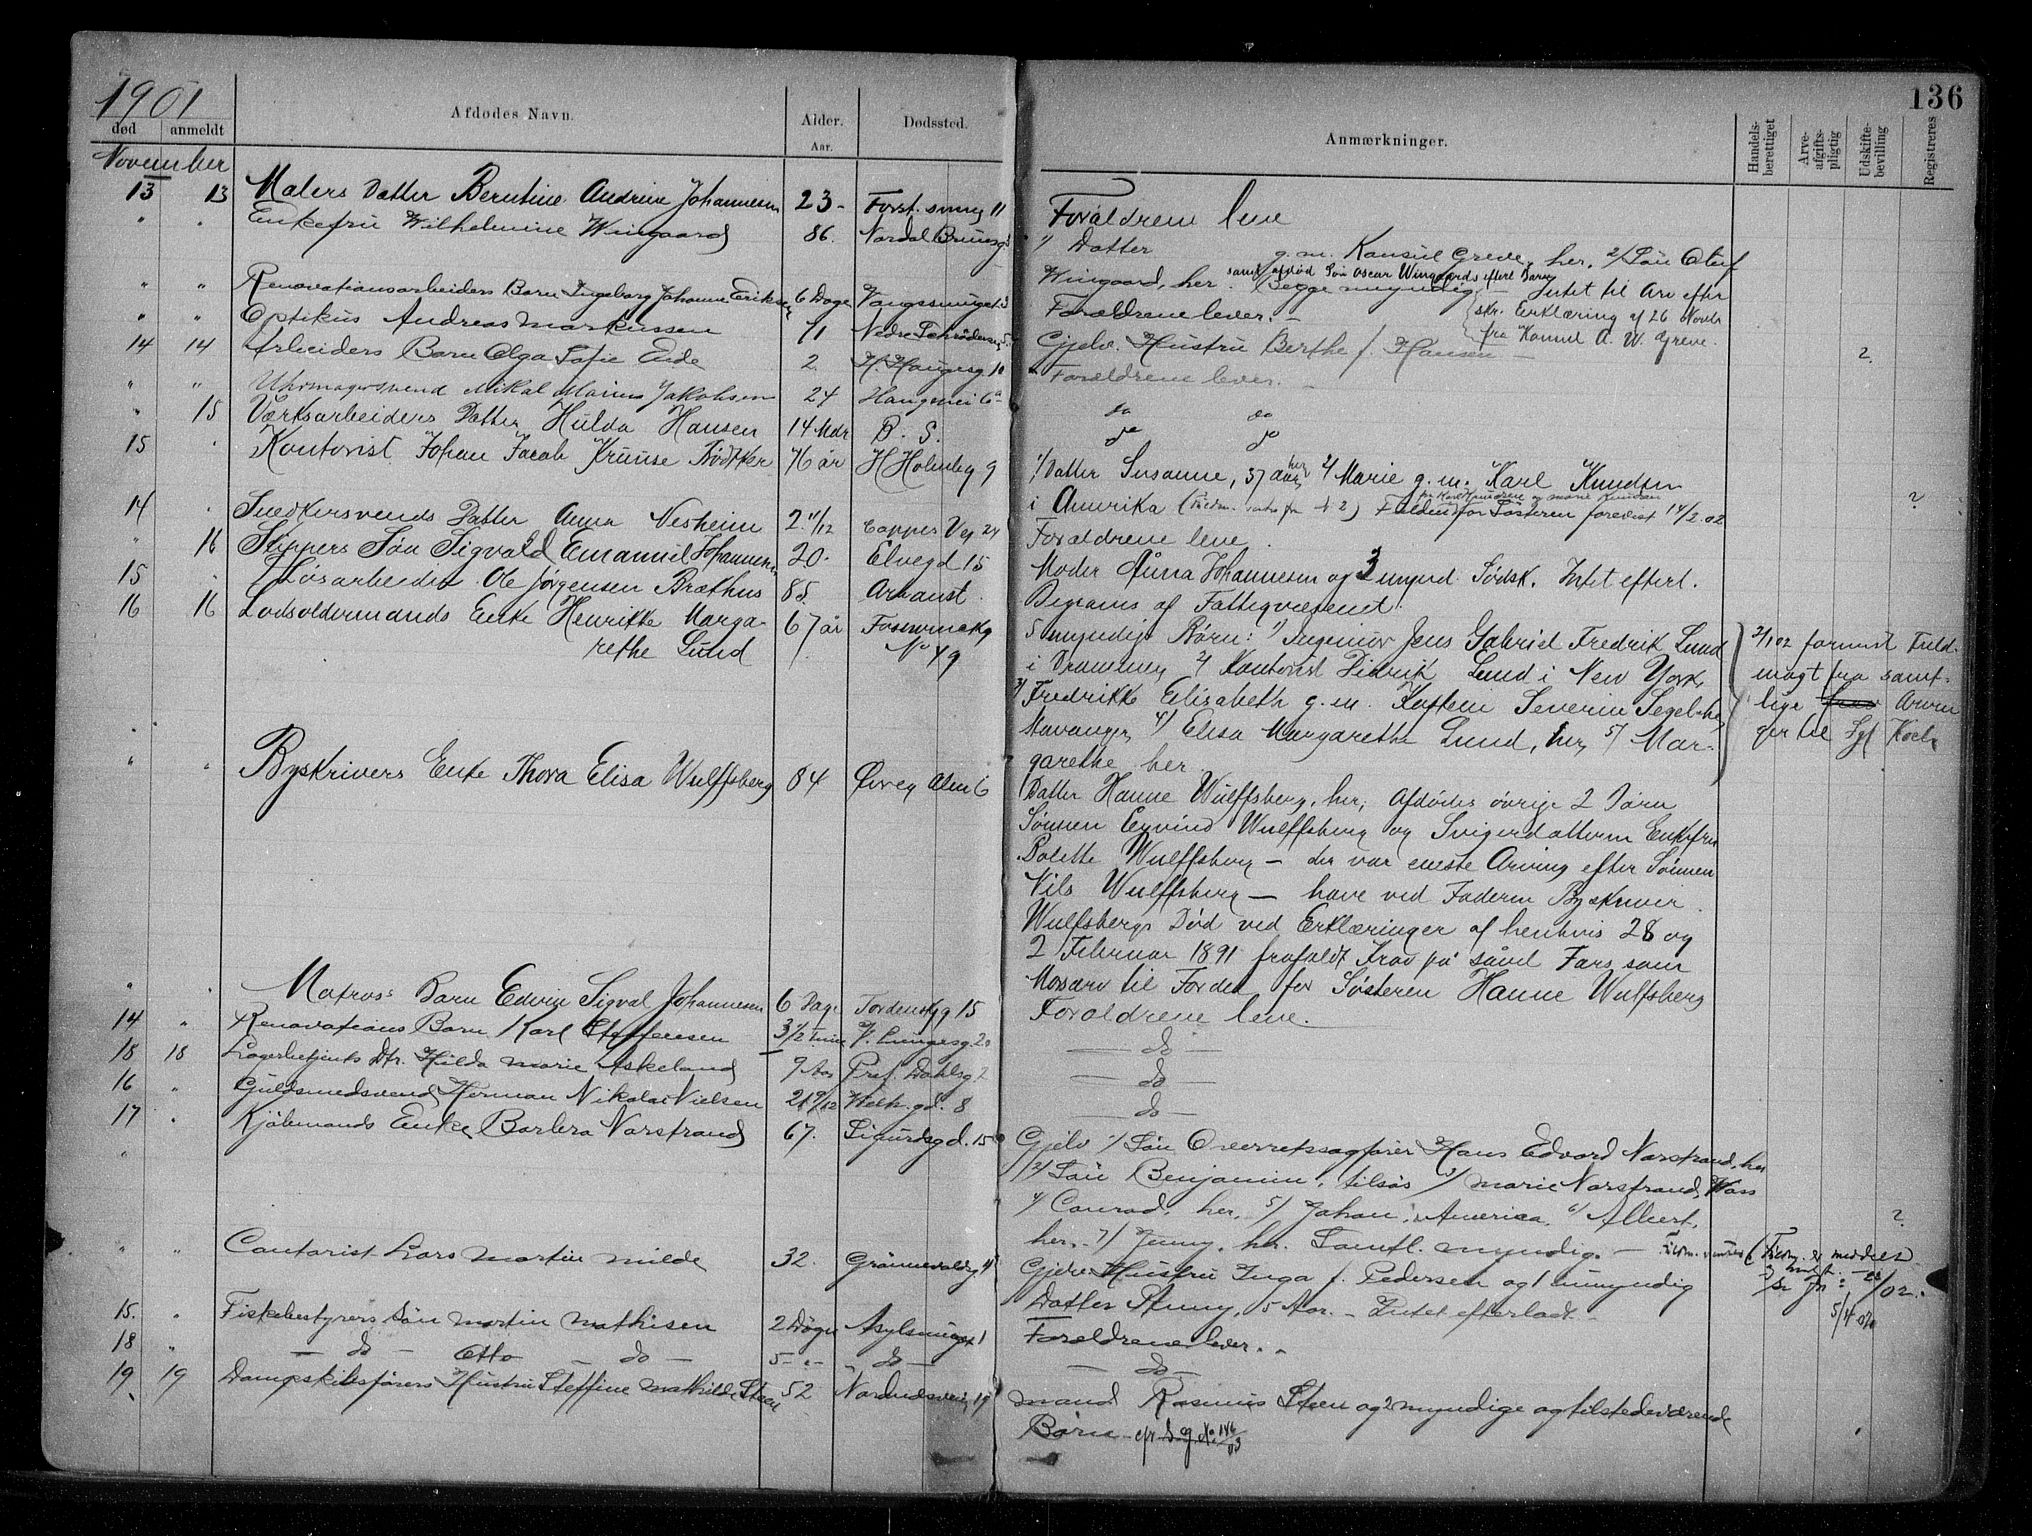 1901
136
død
anmeldt
Afdødes Navn.
Alder.
Aar.
Dødssted.
Anmærkninger.
Handels-berettiget
Arve-afgifts-pligtig
Udskifte-bevilling
Registreres
November
13 13 Malers Datter Berntine Andrine Johannesen 23 Forst. smug 11 Forældrene leve
" " Enkefru Wilhelmine Wingaard 86. Nordal Brunsg 1/ Datter g.m. Konsul Greve, her, 2/ Søn Oluf
Wingaard, her. samt afdød Søn Oscar Wingaards efterl Barn Begge myndig. Intet til Arv efter
" " Renovationsarbeiders Barn Ingeborg Johanne Eriksen 6 Dage Vangssmuget 3 Forældrene lever. — skr. Erklæring af 26 Novbr
" " Optikus Andreas Markussen 71 Nedre 5 Gjelv. Hustru Berthe f. Hansen — fra Konsul A. W. Greve.
14 14 Arbeiders Barn Olga Sofie Eide 2. H. Haugesg. 10 Forældrene lever. — 2.
" " Uhrmagersvend Mikal Marius Jakobsen 24 Haugevei 6a do do
" 15 Værksarbeiders Datter Hulda Hansen 14 Mdr B. S. do do
15 " Kontorist Johan Jacob Kruuse Bødtker 76 år H Holmbg 9 1/ Datter Susanne, 37 aar, her 2/ Marie g. m. Karl Knudsen
i Amerika Fuldmagt for Søsteren forevist 14/2.02 ?
14 Snedkersvends Datter Anna Nesheim 2 11/12 Coppes Vej 24 Forældrene leve.
" 16 Skippers Søn Sigvald Emanuel Johannesen 20. Elvegd 15 Moder Anna Johannesen og 3 umynd. Sødsk. Intet efterl.
15 " Løsarbeider Ole Jørgensen Bræthus 85. Arbanst. Begraves af Fattigvæsenet.
16 16 Lodsoldermands Enke Henrikke Marga- 67 år Foswinckg 5 myndige Børn: 1/ Ingeniør Jens Gabriel Fredrik Lund
rethe Lund No 49 i Drammen, 2/ Kontorist Didrik Lund i New York,
3/ Fredrikke Elisabeth g. m. Kaptein Severin Segelcke
Stavanger, 4/ Elisa Margarethe Lund, her, 5/ Mar-
garethe her.
2/1 02 forevist Fuld-
magt fra samt-
lige fra Arvin
ger til Sgf Koch
" " Byskrivers Enke Thora Elisa Wulffsberg 84 Øvreg Alm 6 Datter Hanne Wulffsberg, her, Afdødes øvrige 2 Børn
Sønnen Eyvind Wulffsberg og Svigerdatteren Enkefru
Bolette Wulffsberg — der var eneste Arving efter Sønnen
Nils Wulffsberg — have ved Faderen Byskriver
Wulfsbergs Død ved Erklæringer af henhvis 28 og
2 Februar 1891 frafaldt Krav på såvel Fars som
Morsarv til Fordel for Søsteren Hanne Wulfsberg
" " Matros: Barn Edvin Sigval Johannesen 6 Dage Tordenskjg 15 Forældrene leve.
14 " Renovations Barn Karl Steffensen 3 1/2 Time V. Lungesg. 20 — do —
18 18 Lagerbetjents Dtr. Hulda Marie Askeland 9 Aar Prof. Dahlsg 2 — do —
16 " Guldsmedsvend Herman Nikolai Nielsen 21 9/12 Welh. gd. 8 — do —
17 " Kjøbmands Enke Barbra Narstrand 67. Sigurdsgd. 15 Gjelv 1/ Søn Overretssagfører Hans Edvard Narstrand, her
2/ Søn Benjamin, tilsøs 3/ Marie Narstrand, Voss
4/ Conrad, her, 5/ Johan, i America, 6/ Albert,
her, 7/ Jenny, her. Samtl. myndig. — ?
" " Contorist Lars Martin Milde 32. Grønnevoldg 4 Gjelv. Hustru Inga f. Pedersen og 1 umyndig
Datter Fanny, 5 Aar. — Intet efterladt. 5/4 02
15. " Fiskebestyrers Søn Martin Mathisen 2 Døgn Asylsmuget 1 Forældrene lever. —
18 " — do — Otto — do — 5 — " — do — — do —
19 19 Dampskibsførers Hustru Steffine Mathilde Steen 52 19 Mand Rasmus Steen og 2 myndige og tilstedeværende
Børn cfr S. g No 146/03